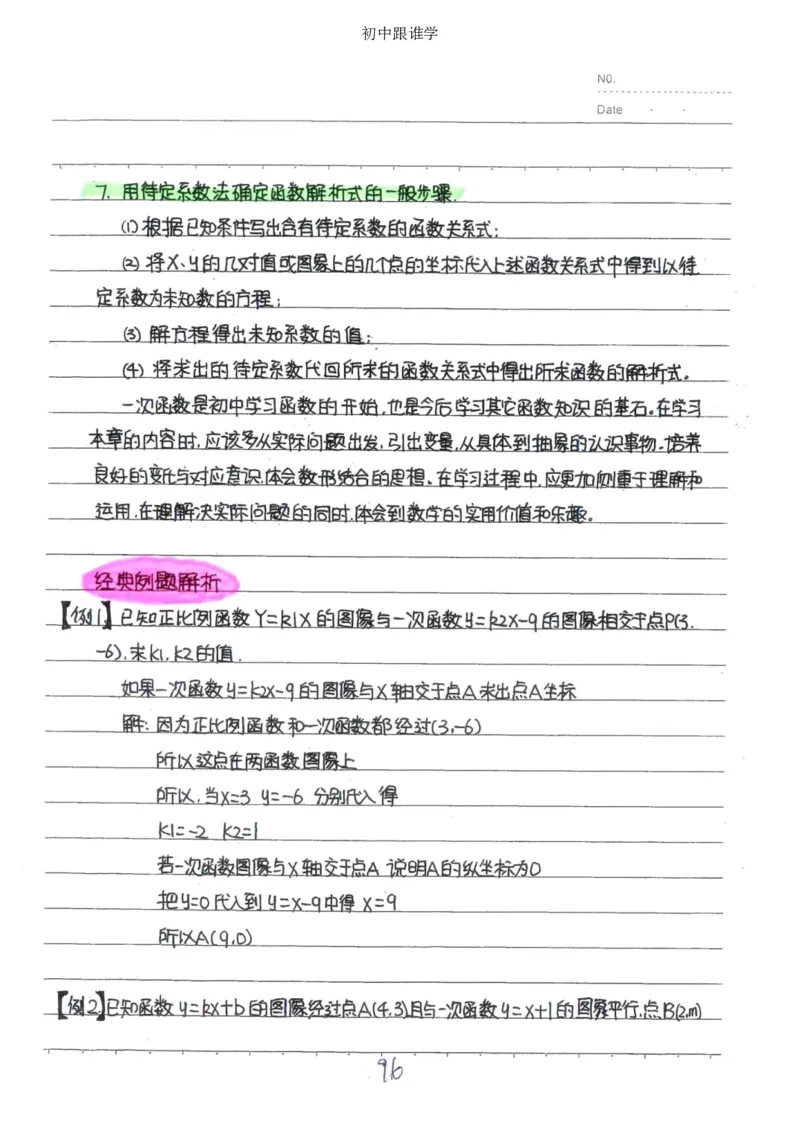 初中跟谁学
NO.
Date
7. 用待定系数法确定函数解析式的一般步骤.
(1) 根据已知条件写出含有待定系数的函数关系式;
(2) 将X、y的几对值或图象上的几个点的坐标代入上述函数关系式中得到以待
定系数为未知数的方程;
(3) 解方程得出未知系数的值;
(4) 将求出的待定系数代回所求的函数关系式中得出所求函数的解析式。
一次函数是初中学习函数的开始,也是今后学习其它函数知识的基石。在学习
本章的内容时,应该多从实际问题出发,引出变量,从具体到抽象的认识事物.培养
良好的变化与对应意识,体会数形结合的思想。在学习过程中,应更加侧重于理解和
运用,在理解决实际问题的同时,体会到数学的实用价值和乐趣。
经典例题解析
【例1】已知正比例函数Y=k1X的图像与一次函数y=k2X-9的图像相交于点P(3.
-6),求k1,k2的值.
如果一次函数y=k2X-9的图像与X轴交于点A求出点A坐标
解:因为正比例函数和一次函数都经过(3,-6)
所以这点在两函数图像上
所以,当X=3 y=-6 分别代入得
k1=-2 k2=1
若一次函数图像与X轴交于点A 说明A的纵坐标为0
把y=0代入到y=X-9中得 X=9
所以A(9,0)
【例2】已知函数y=kX+b的图像经过点A(4,3)且与一次函数y=X+1的图像平行,点B(2,m)
96